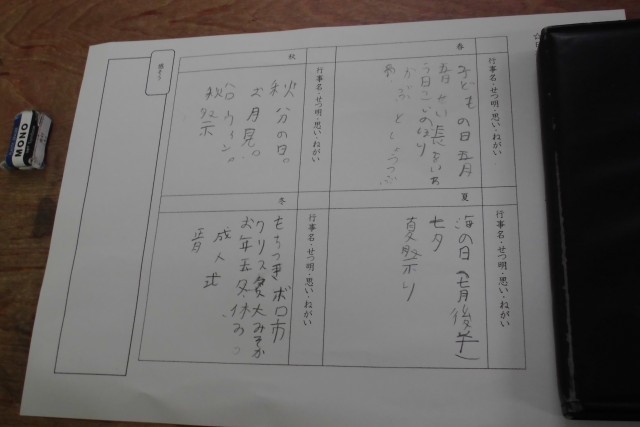 春
行事名・せつ明・思い・ねがい
子どもの日五月
かぶと
夏
行事名・せつ明・思い・ねがい
海の日(七月後半)
七夕
夏祭り
秋
行事名・せつ明・思い・ねがい
秋分の日。
お月見。
ハロウィーン。
秋祭
冬
行事名・せつ明・思い・ねがい
もちつき ボロ市
クリスマス 大みそか
お年玉 冬休み。
成人式
MONO